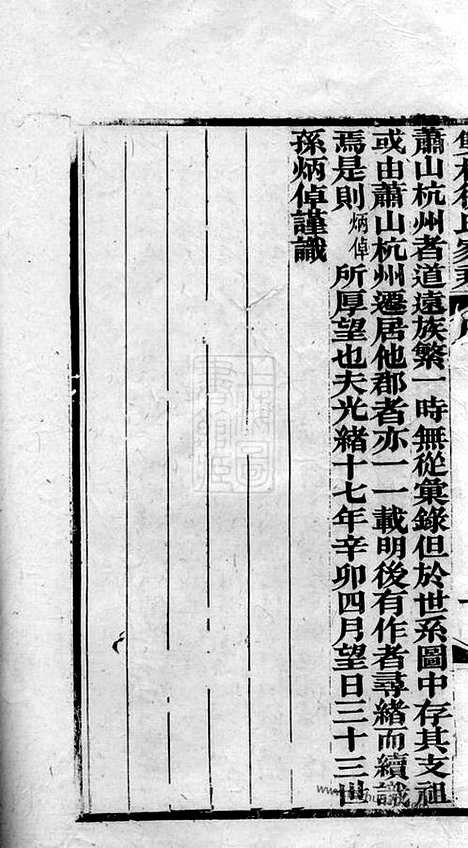 蕭山杭州者道遠族繁一時無從彙錄但於世系圖中存其支祖
或由蕭山杭州遷居他郡者亦一一載明後有作者尋緒而續識
焉是則炳倬所厚望也夫光緒十七年辛卯四月望日三十三世
孫炳倬謹識